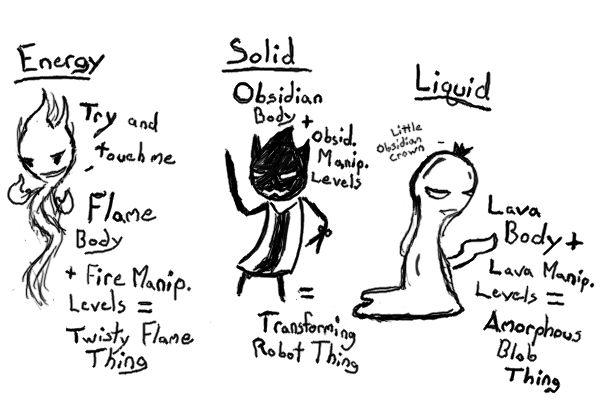 Energy
Try and
touch me
Flame
Body
+ Fire Manip.
Levels =
Twisty Flame
Thing
Solid
Obsidian
Body +
Obsid.
Manip.
Levels
=
Transforming
Robot Thing
Liquid
Little
Obsidian
Crown
Lava
Body +
Lava Manip.
Levels =
Amorphous
Blob
Thing